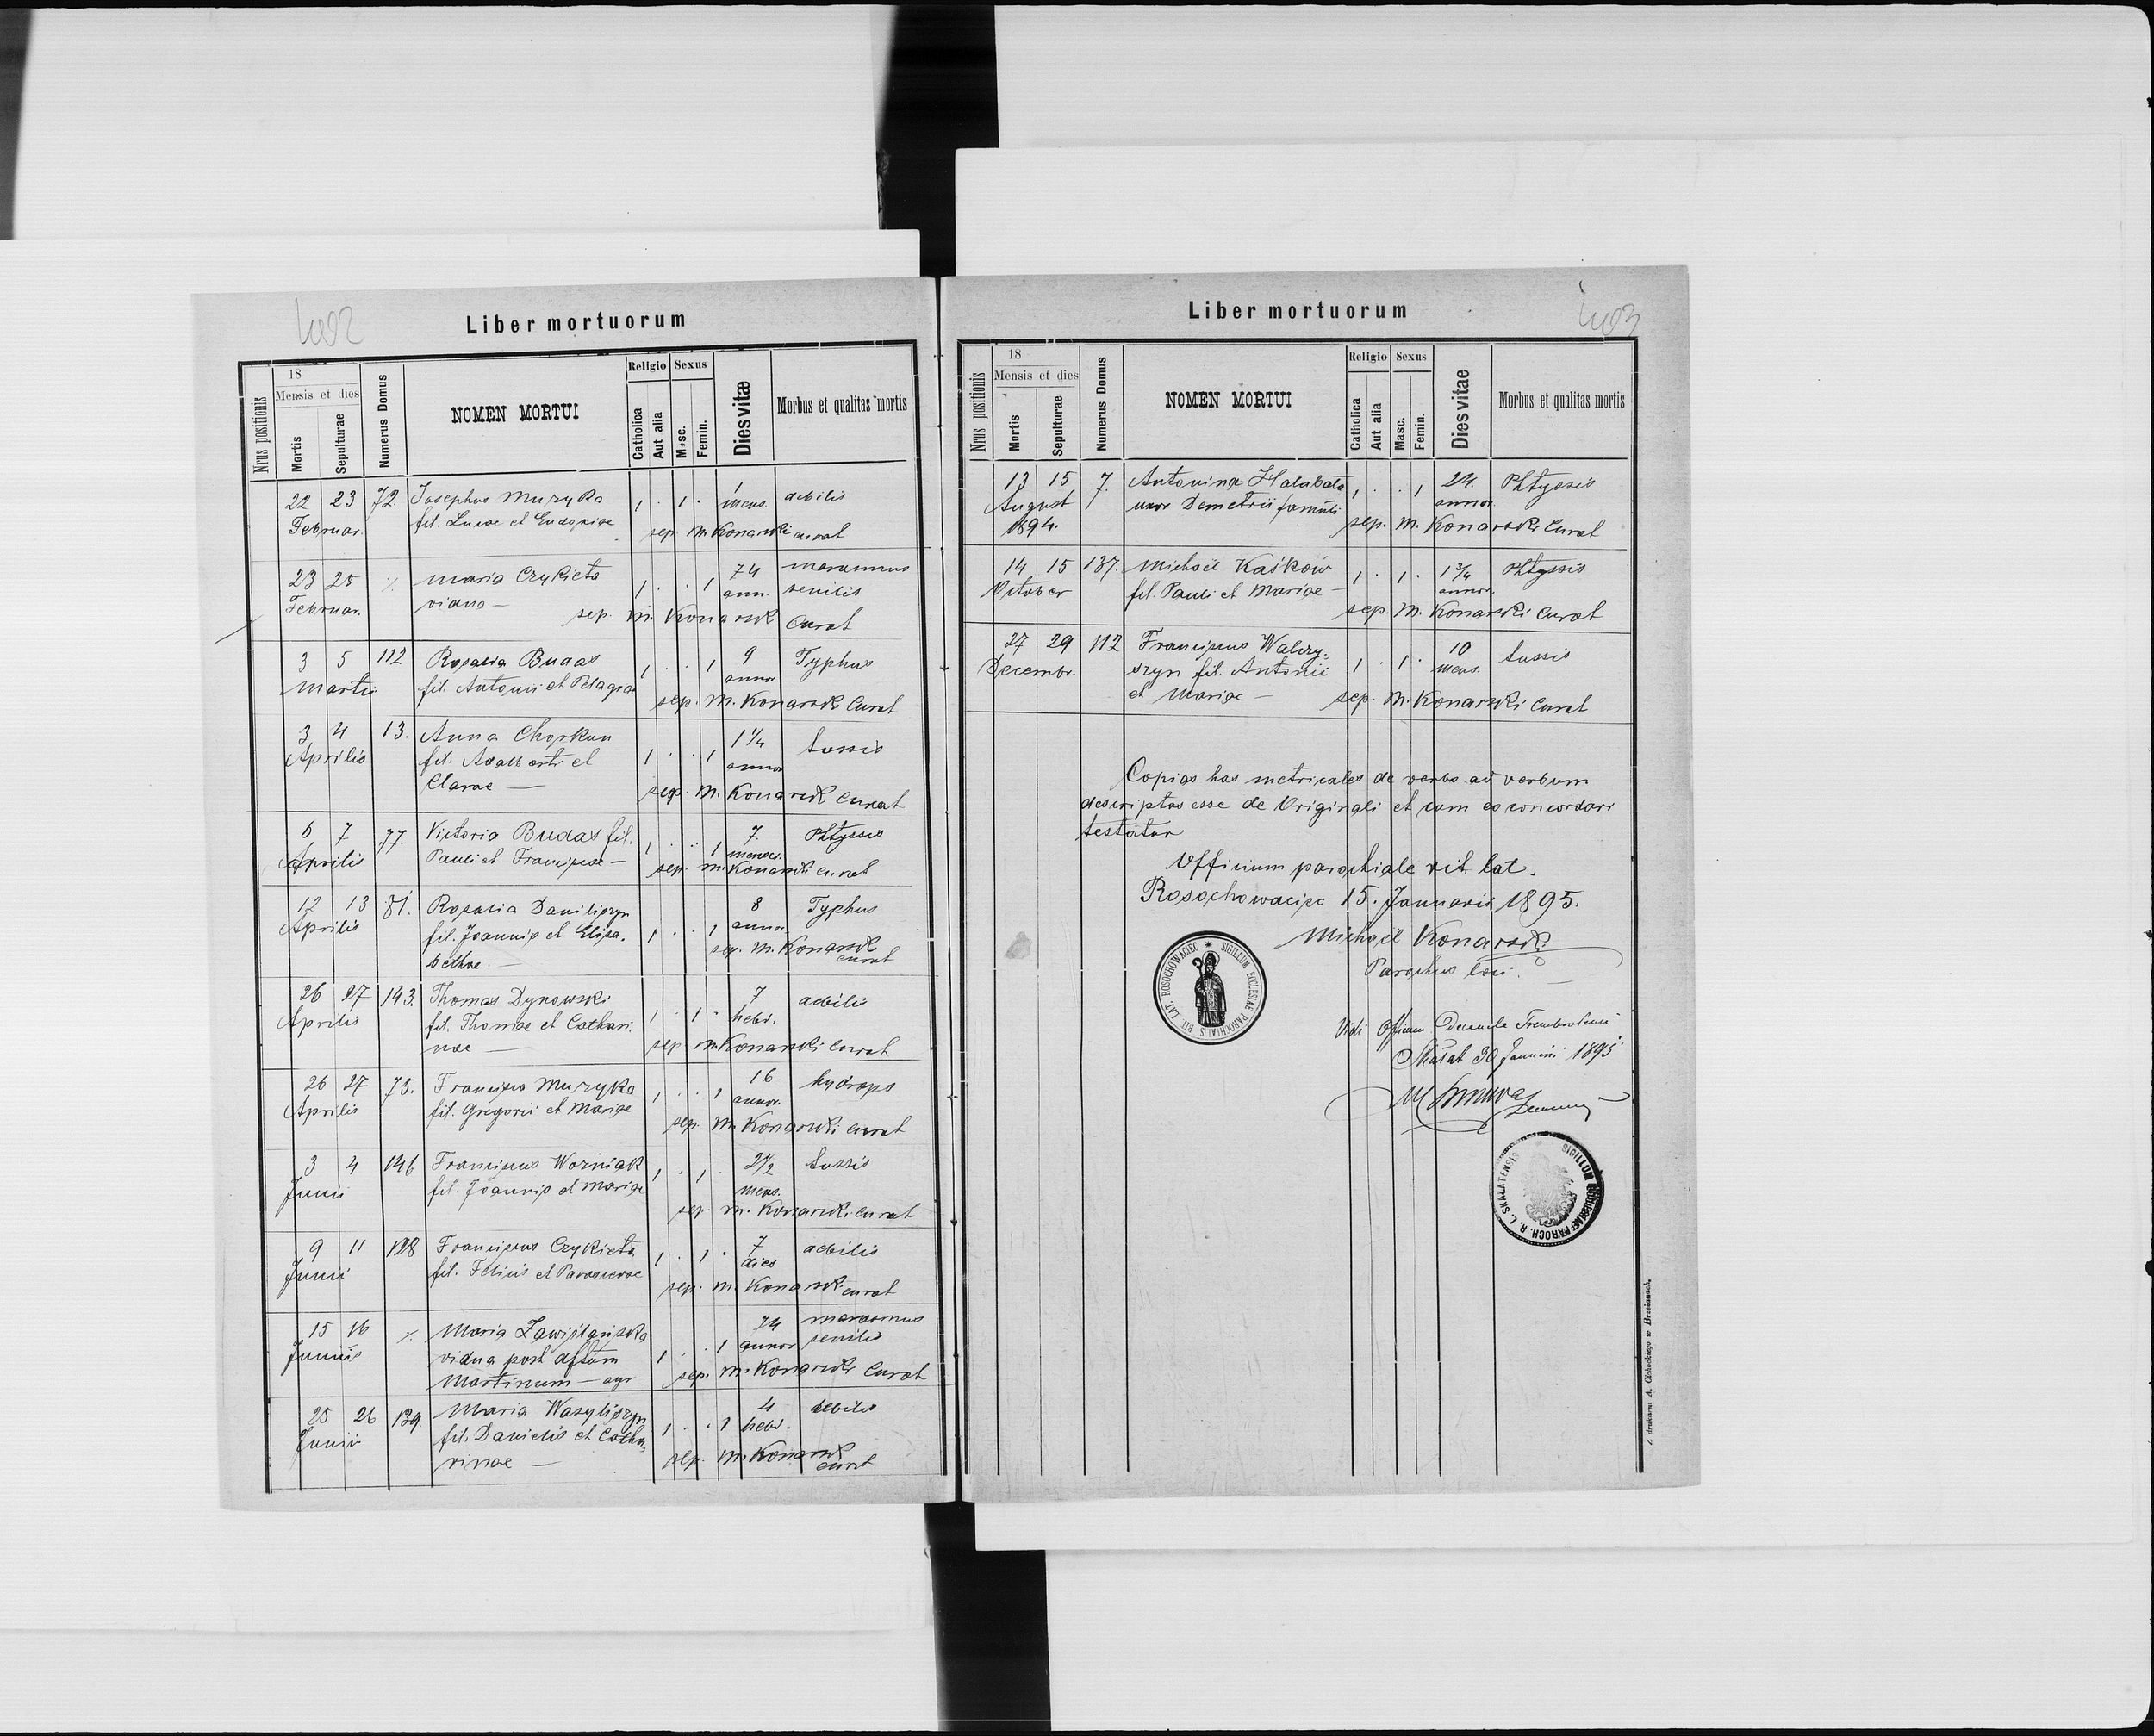 Liber mortuorum
Nrus positionis
18
Mensis et dies
Mortis
Sepulturae
Numerus Domus
NOMEN MORTUI
Religio
Catholica
Aut alia
Sexus
Masc.
Femin.
Dies vitæ
Morbus et qualitas mortis
22 23 72. Josephus Muzyka 1 . 1 . 1 debilis
Februar. fil. Lucae et Eudoxiae mens.
sep. M. Konarski curat
23 25 Maria Czykieta 1 . . 1 74 marasmus
Februar. vidua — ann. senilis
sep. M. Konarski Curat
3 5 112 Rosalia Budas 1 . . 1 9 Typhus
Martii fil. Antonii et Pelagiae annor
sep. M. Konarski Curat
3 4 13. Anna Chorkun 1 . . 1 1 1/4 tussis
Aprilis fil. Adalberti et annor
Clarae —
sep. M. Konarski Curat
6 7 77. Victoria Budas fil. 1 . . 1 7. Phtyssis
Aprilis Pauli et Franciscae — menses.
sep. M. Konarski curat
12 13 81. Rosalia Daniliszyn 8 Typhus
Aprilis fil. Joannis et Elisa- 1 . . 1 annor.
bethae. —
sep. M. Konarski
curat
26 27 143. Thomas Dynowski 7. debilis
Aprilis fil. Thomae et Cathari- 1 . 1 . hebd.
nae —
sep. M. Konarski curat
26 27 75. Francisca Muzyka 1 . . 1 16 hydrops
Aprilis fil. Gregorii et Mariae annor.
sep. M. Konarski curat
3 4 146 Franciscus Woźniak 1 . 1 . 2 1/2 tussis
Junii fil. Joannis et Mariae mens.
sep. M. Konarski curat
9 11 128 Franciscus Czykieta 1 . 1 . 7 debilis
Junii fil. Felicis et Parascevae dies
sep. M. Konarski curat
15 16 Maria Zawiślańska 74 marasmus
Junii vidua post dftum 1 . . 1 annor senilis
Martinum — agr
sep. M. Konarski Curat
25 26 139. Maria Wasyliszyn 1 . . 1 4 debilis
Junii fil. Danielis et Catha- hebd.
rinae —
sep. M. Konarski
curat
Liber mortuorum
Nrus positionis
18
Mensis et dies
Mortis
Sepulturae
Numerus Domus
NOMEN MORTUI
Religio
Catholica
Aut alia
Sexus
Masc.
Femin.
Dies vitae
Morbus et qualitas mortis
13 15 7. Antonina Hałabała 1 . . 1 24. Phtyssis
August uxor Demetrii famuli annor.
1894. sep. M. Konarski Curat
14 15 137. Michael Kaśków 1 . 1 . 1 3/4 Phtyssis
October fil. Pauli et Mariae — annor.
sep. M. Konarski Curat
27 29 112 Franciscus Walczy- 10 tussis
Decembr. szyn fil. Antonii 1 . 1 . mens.
et Mariae — sep. M. Konarski Curat
Copias has metricales de verbo ad verbum
descriptas esse de Originali et cum eo concordari
testatur
Officium parochiale rit. lat.
Rosochowaciec 15. Januarii 1895.
Michael Konarski
Parochus loci.
SIGILLUM ECCLESIAE PAROCHIALIS RIT. LAT. ROSOCHOWACIEC
Vidi Officium Decanale Trembowlensi
Skałat 30 Januarii 1895
SIGILLUM ECCLESIAE PAROCH. R. L. SKAŁATENSIS
Z drukarni A. Cichockiego w Brzeżanach.